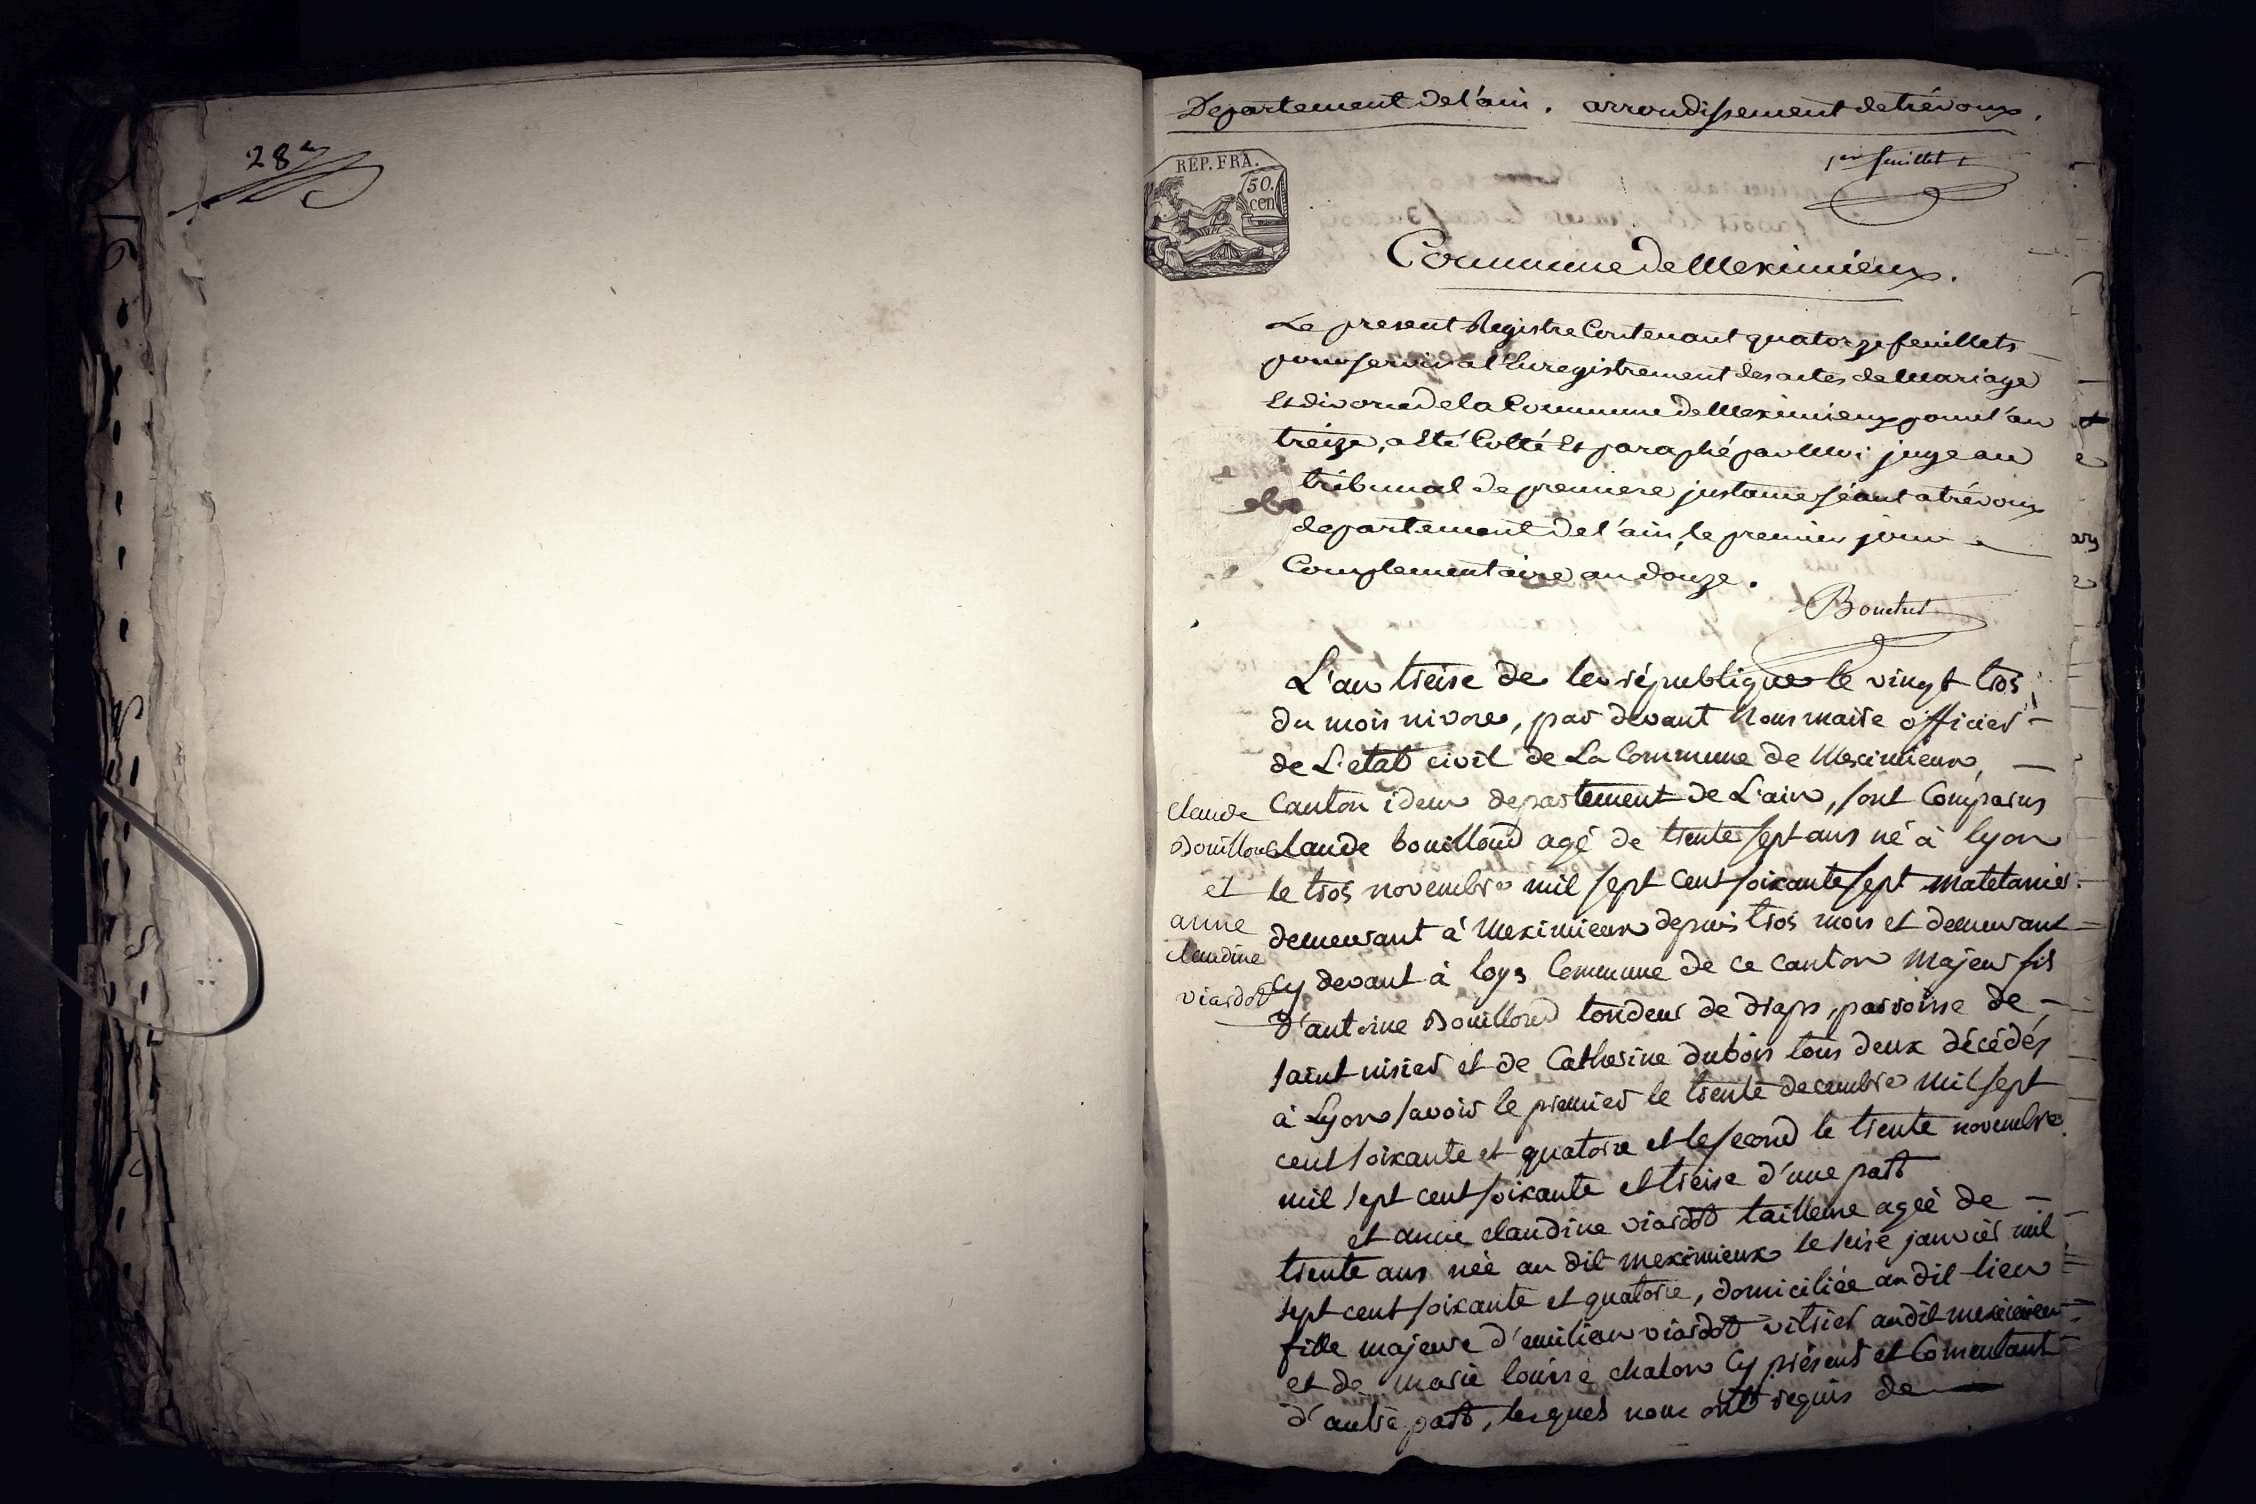 28e
Departement de l'ain. arrondissement de trévoux.
1er feuillet
REP. FRA.
50.
cen
Commune de Meximieux.
Le present Registre Contenant quatorze feuillets
pour servir a l'Enregistrement des actes de Mariage
Et divorce de la Commune de Meximieux pour l'an
treize, a Eté Cotté Et paraphé par Moi juge au
tribunal de premiere justance séant a trévoux
departement de l'ain, le premier jour
Complementaire an douze.
L'an treise de la république le vingt trois
du mois nivose, par devant Nous maire officier
de L'etat civil de La Commune de Meximieux,
Canton idem departement de L'ain, sont Comparus
claude bouilloud agé de trente sept ans né à lyon
le trois novembre mil sept cent soixante sept matelanier
demeurant à Meximieux depuis trois mois et demeurant
cy devant à loys Commune de ce canton majeur fils
d'antoine Bouilloud tondeur de draps, parroisse de
saint nisier et de Catherine dubois tous deux décédés
à Lyon savoir le premier le trente decembre mil sept
cent soixante et quatorse et le second le trente novembre
mil sept cent soixante et treise d'une part
et anne claudine viardot tailleuse agée de
trente ans née au dit meximieux le seise janvier mil
sept cent soixante et quatorse, domiciliée au dit lieu
fille majeure d'emilien viardot vitrier audit meximieux
et de marie louise chalon cy présent et Comentant
d'autre part, lesquels nous ont requis de
claude
Bouilloud
et
anne
claudine
viardot